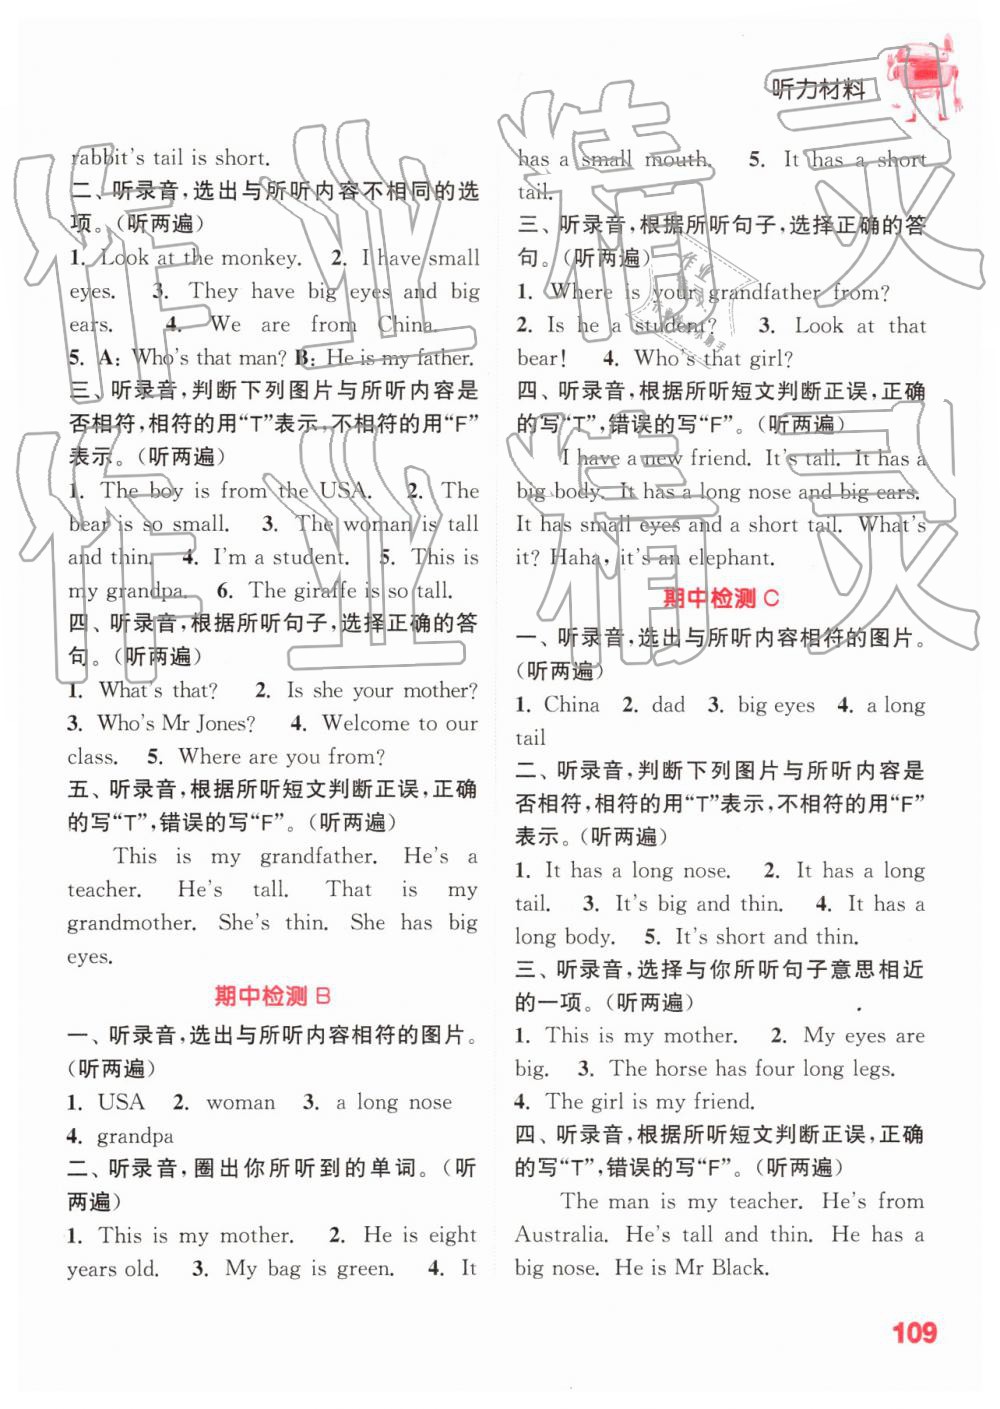 听力材料
rabbit's tail is short.
二、听录音,选出与所听内容不相同的选
项。(听两遍)
1. Look at the monkey. 2. I have small
eyes. 3. They have big eyes and big
ears. 4. We are from China.
5. A: Who's that man? B: He is my father.
三、听录音,判断下列图片与所听内容是
否相符,相符的用“T”表示,不相符的用“F”
表示。(听两遍)
1. The boy is from the USA. 2. The
bear is so small. 3. The woman is tall
and thin. 4. I'm a student. 5. This is
my grandpa. 6. The giraffe is so tall.
四、听录音,根据所听句子,选择正确的答
句。(听两遍)
1. What's that? 2. Is she your mother?
3. Who's Mr Jones? 4. Welcome to our
class. 5. Where are you from?
五、听录音,根据所听短文判断正误,正确
的写“T”,错误的写“F”。(听两遍)
This is my grandfather. He's a
teacher. He's tall. That is my
grandmother. She's thin. She has big
eyes.
期中检测 B
一、听录音,选出与所听内容相符的图片。
(听两遍)
1. USA 2. woman 3. a long nose
4. grandpa
二、听录音,圈出你所听到的单词。(听
两遍)
1. This is my mother. 2. He is eight
years old. 3. My bag is green. 4. It
has a small mouth. 5. It has a short
tail.
三、听录音,根据所听句子,选择正确的答
句。(听两遍)
1. Where is your grandfather from?
2. Is he a student? 3. Look at that
bear! 4. Who's that girl?
四、听录音,根据所听短文判断正误,正确
的写“T”,错误的写“F”。(听两遍)
I have a new friend. It's tall. It has a
big body. It has a long nose and big ears.
It has small eyes and a short tail. What's
it? Haha, it's an elephant.
期中检测 C
一、听录音,选出与所听内容相符的图片。
(听两遍)
1. China 2. dad 3. big eyes 4. a long
tail
二、听录音,判断下列图片与所听内容是
否相符,相符的用“T”表示,不相符的用“F”
表示。(听两遍)
1. It has a long nose. 2. It has a long
tail. 3. It's big and thin. 4. It has a
long body. 5. It's short and thin.
三、听录音,选择与你所听句子意思相近
的一项。(听两遍)
1. This is my mother. 2. My eyes are
big. 3. The horse has four long legs.
4. The girl is my friend.
四、听录音,根据所听短文判断正误,正确
的写“T”,错误的写“F”。(听两遍)
The man is my teacher. He's from
Australia. He's tall and thin. He has a
big nose. He is Mr Black.
109
作业精灵
作业精灵